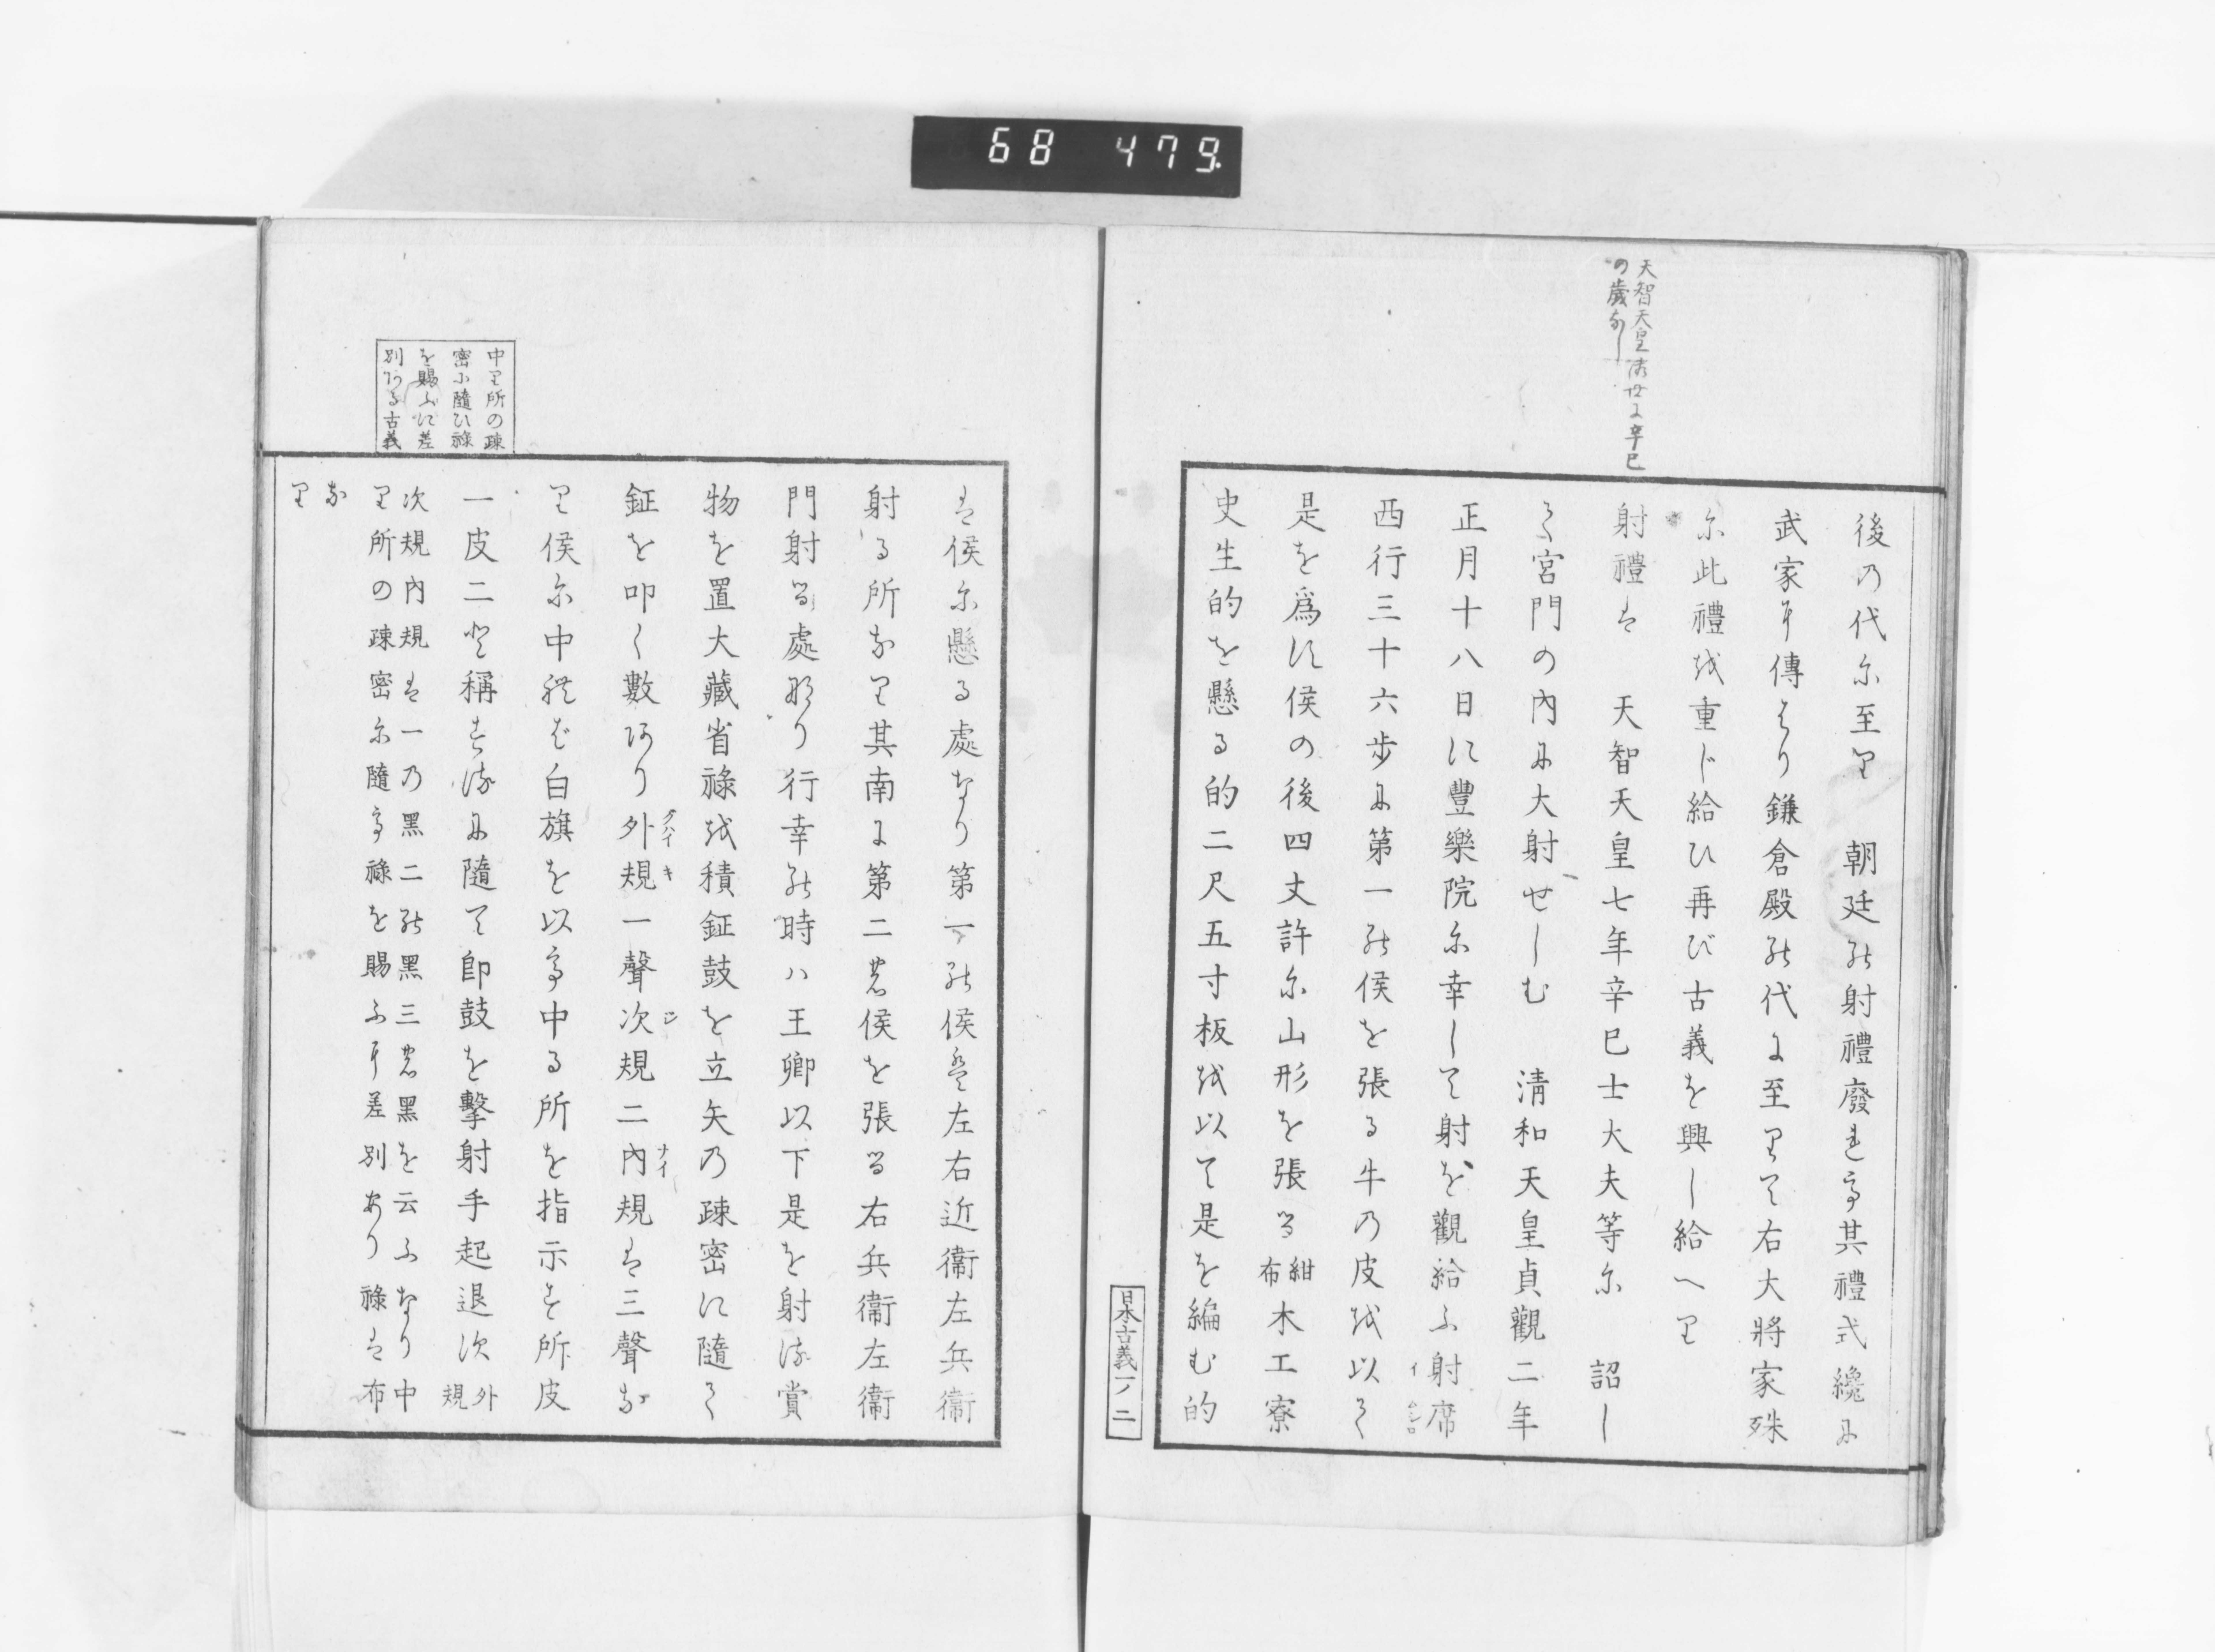 68 479.
天智天皇御世に辛巳
の歳なし
後乃代尓至り　朝廷能射禮廢れ亭其禮式纔に
武家耳傳はり鎌倉殿能代に至りて右大將家殊
尓此禮越重じ給ひ再び古義を興し給へり
射禮は　天智天皇七年辛巳士大夫等尓　詔し
て宮門の内に大射せしむ　淸和天皇貞觀二年
正月十八日に豐樂院尓幸して射を觀給ふ射席
西行三十六歩に第一能侯を張る牛乃皮越以て
是を爲に侯の後四丈許尓山形を張る紺布木工寮
史生的を懸る的二尺五寸板越以て是を編む的
日本古義一ノ二
中り所の疎
密尓隨ひ祿
を賜ふに差
別ある古義
は侯尓懸る處なり第一能侯盤左右近衞左兵衞
射る所なり其南に第二農侯を張る右兵衞左衞
門射る處那り行幸能時ハ王卿以下是を射流賞
物を置大藏省祿越積鉦鼓を立矢乃疎密に隨て
鉦を叩く數阿り外規一聲次規二內規は三聲な
グハイキ
ジ
ナイ
り侯尓中禮ば白旗を以亭中る所を指示す所皮
一皮二登稱す流に隨て卽鼓を擊射手起退次外規
次規內規は一乃黑二能黑三農黑を云ふなり中
り所の疎密尓隨亭祿を賜ふ耳差別あり祿は布
な
り